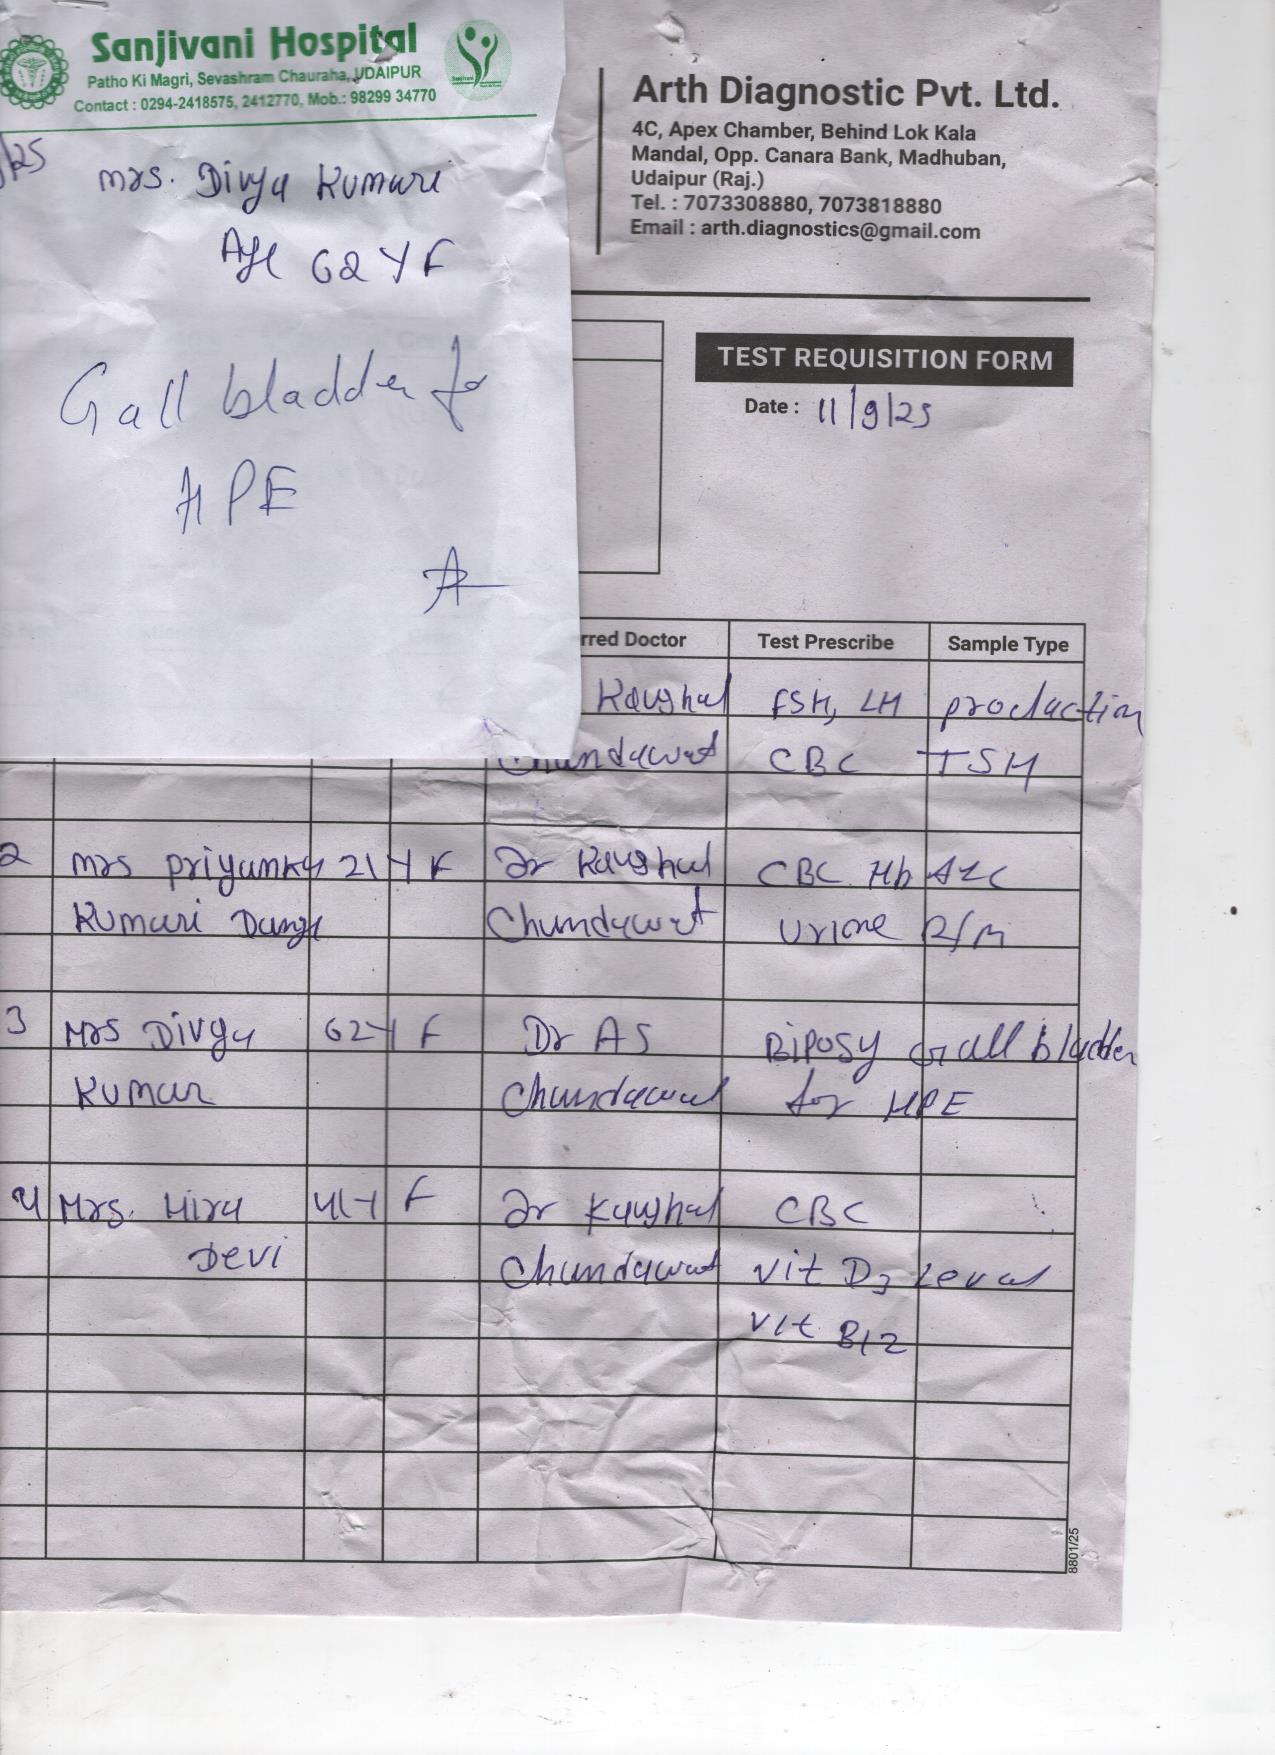 Sanjivani Hospital
Patho Ki Magri, Sevashram Chauraha, UDAIPUR
Contact : 0294-2418575, 2412770, Mob.: 98299 34770
/25
Mrs. Divya Kumari
Age 62 Y F
Gall bladder for
HPE
Arth Diagnostic Pvt. Ltd.
4C, Apex Chamber, Behind Lok Kala
Mandal, Opp. Canara Bank, Madhuban,
Udaipur (Raj.)
Tel. : 7073308880, 7073818880
Email : arth.diagnostics@gmail.com
TEST REQUISITION FORM
Date : 11/9/25
rred Doctor Test Prescribe Sample Type
Kaushal FSH, LH prolactin
Chundawat CBC TSH
2 Mrs Priyanka 21 Y F Dr Kaushal CBC Hb A1C
Kumari Dangi Chundawat Urine R/M
3 Mrs Divya 62 Y F Dr AS Biposy Gall bladder
Kumar Chundawat for HPE
4 Mrs. Hira 41 Y F Dr Kaushal CBC
Devi Chundawat Vit D3 Leval
Vit B12
8801/25